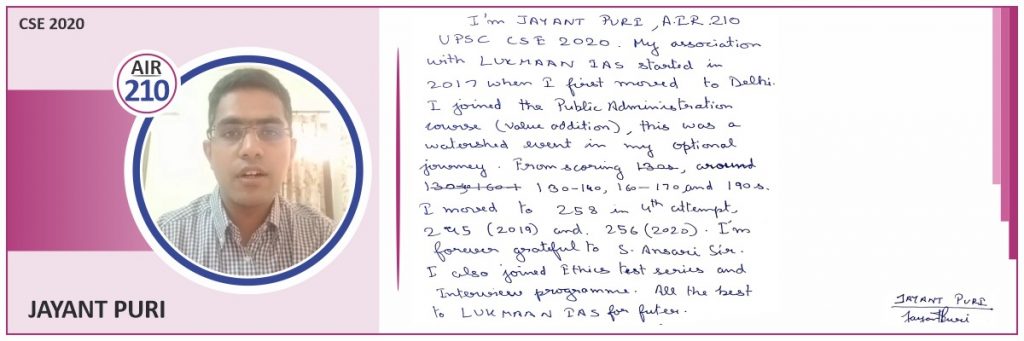 CSE 2020
AIR
210
JAYANT PURI
I'm JAYANT PURI, A.I.R. 210
UPSC CSE 2020. My association
with LUKMAAN IAS started in
2017 when I first moved to Delhi.
I joined the Public Administration
course (value addition), this was a
watershed event in my optional
journey. From scoring 130s, around
130 160+ 130-140, 160-170, and 190s.
I moved to 258 in 4th attempt,
245 (2019) and. 256 (2020). I'm
forever grateful to S. Ansari Sir.
I also joined Ethics test series and
Interview programme. All the best
to LUKMAAN IAS for futer.
JAYANT PURI
Jayant Puri